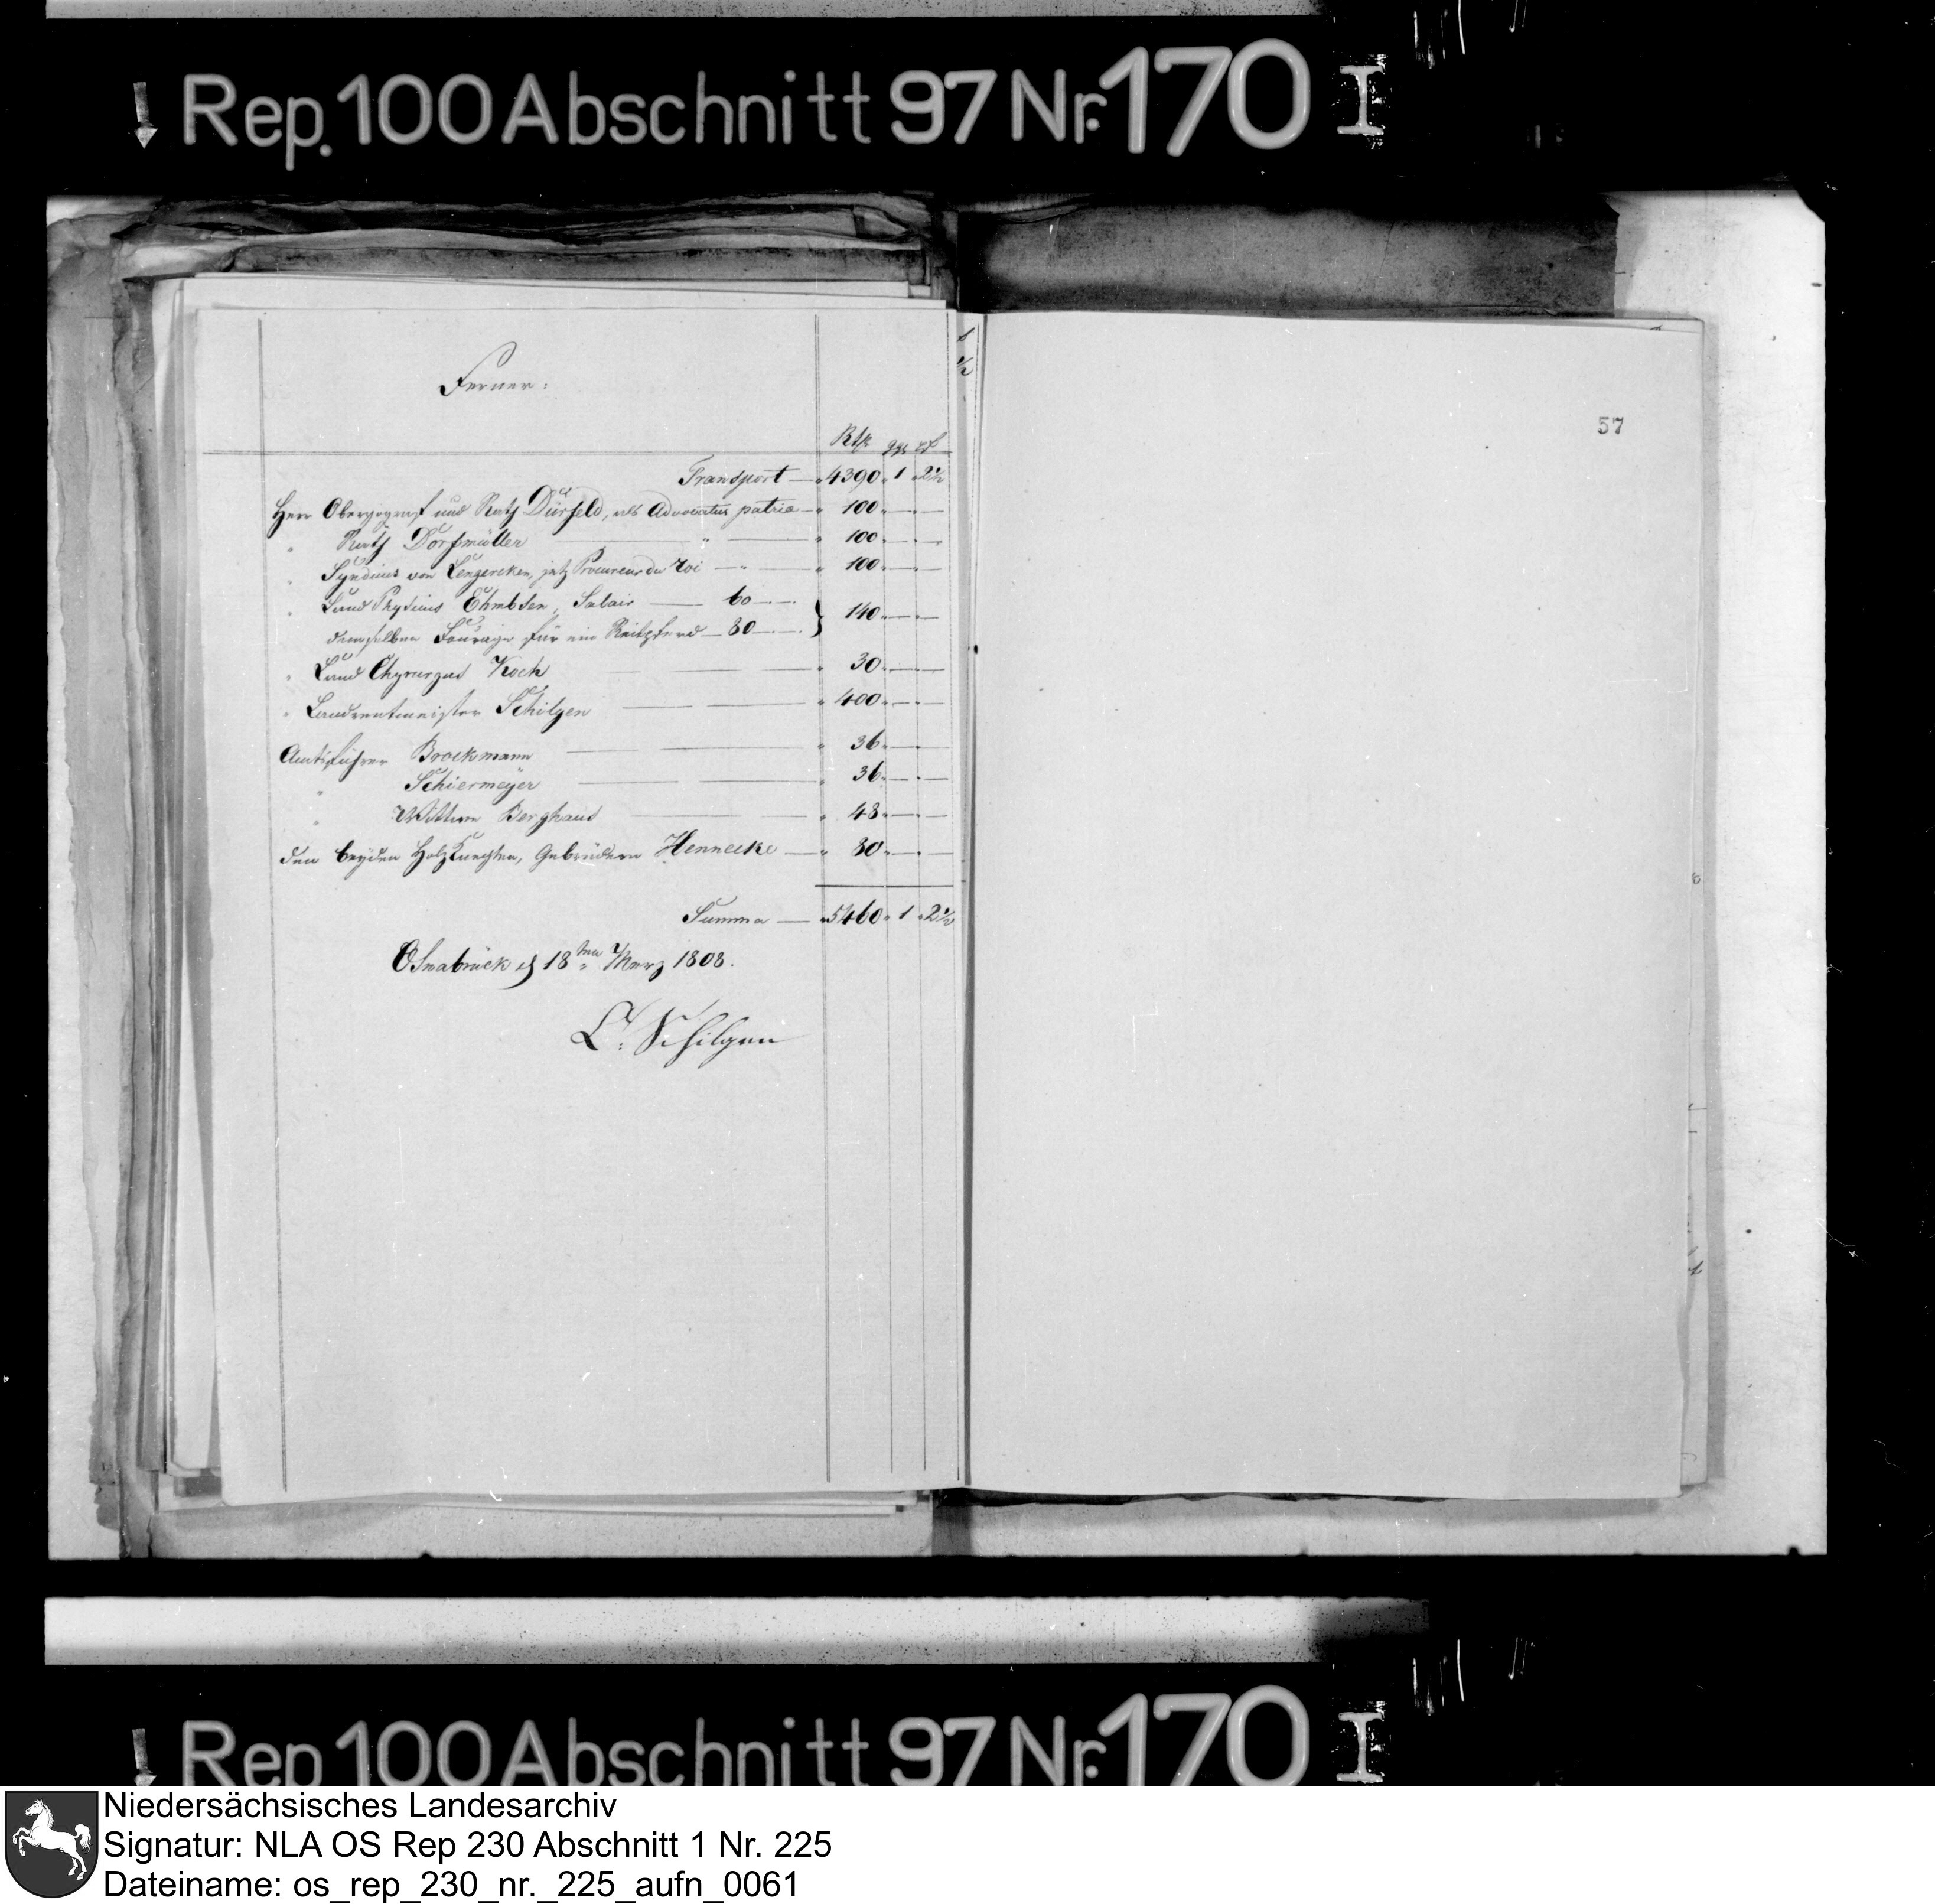 Rep. 100 Abschnitt 97 Nr. 170 I
Ferner:
Rtlr ggr d
Transport — 4390 " 1 " 2½
Herr Obergograf und Rath Dürfeld, als Advocatus patriæ — " 100 " — " —
" Rath Dorfmüller — " — " 100 " — " —
" Syndicus von Lengercken, jetz Procureur du roi — " — " 100 " — " —
" Land Physicus Ehmbsen, Salair — 60 — " —
demselben Fourage für ein Reitpferd — 80 — " — } 140 " — " —
" Land Chyrurgus Koch — " 30 " — " —
" Landrentmeister Schilgen — " 400 " — " —
Amtsführer Brockmann — " 36 " — " —
" Schiermeÿer — " 36 " — " —
" Wittwe Berghaus — " 48 " — " —
den beÿden Holz Knechten, Gebrüdern Hennecke — " 80 " — " —
Summa — " 5460 " 1 " 2½
Osnabrück d 18ten Merz 1808.
Schilgen
57
Rep 100 Abschnitt 97 Nr. 170 I
Niedersächsisches Landesarchiv
Signatur: NLA OS Rep 230 Abschnitt 1 Nr. 225
Dateiname: os_rep_230_nr._225_aufn_0061